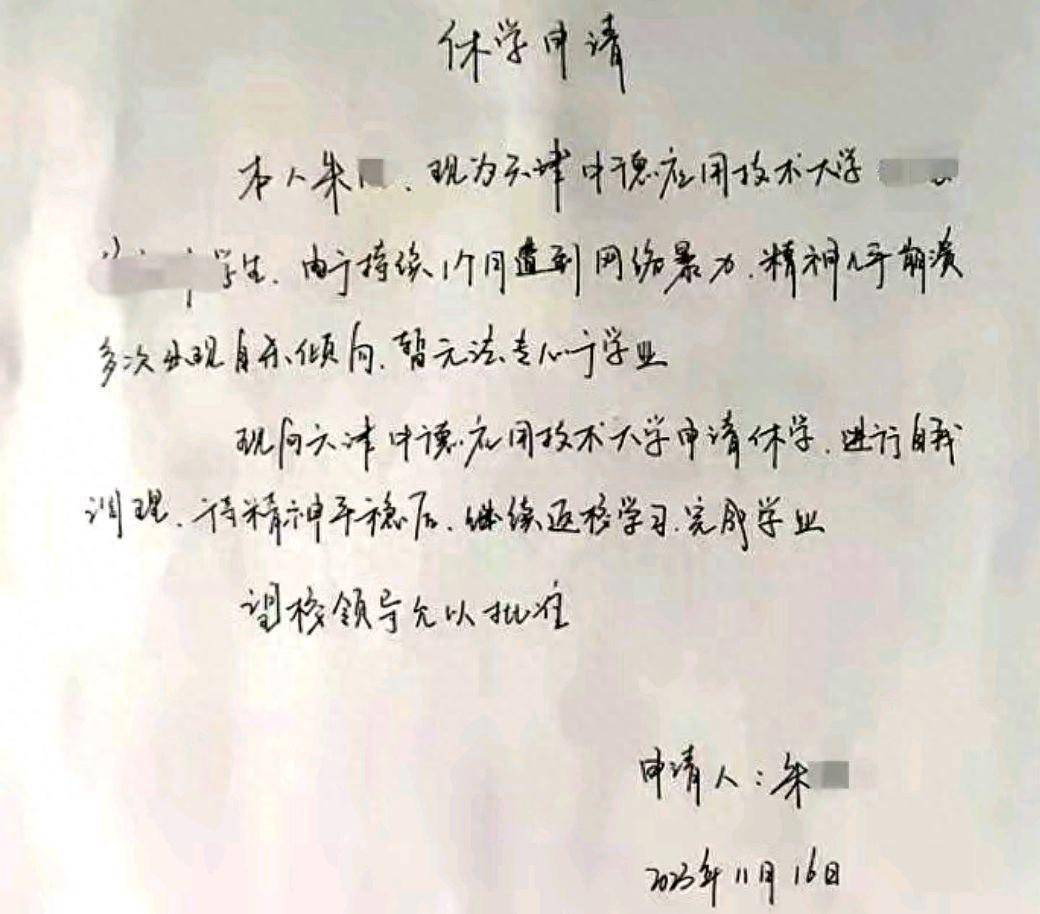 休学申请
本人朱、现为天津中德应用技术大学
学生、由于持续1个月遭到网络暴力、精神几乎崩溃
多次出现自杀倾向、暂无法专心于学业
现向天津中德应用技术大学申请休学、进行自我
调理、待精神平稳后、继续返校学习、完成学业
望校领导允以批准
申请人:朱
2023年11月16日